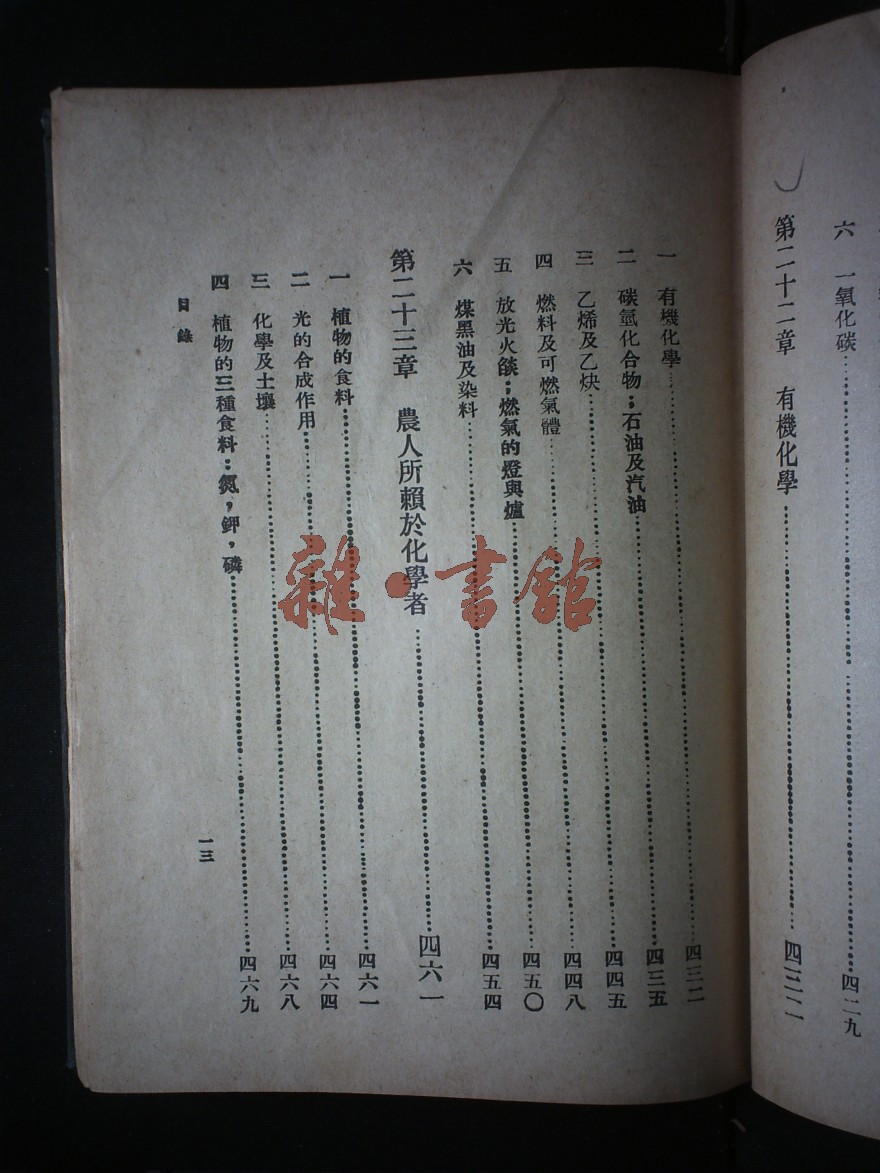 六 一氧化碳……四二九
第二十二章 有機化學……四三二
一 有機化學……四三二
二 碳氫化合物；石油及汽油……四三五
三 乙烯及乙炔……四四五
四 燃料及可燃氣體……四四八
五 放光火燄；燃氣的燈與爐……四五〇
六 煤黑油及染料……四五四
第二十三章 農人所賴於化學者……四六一
一 植物的食料……四六一
二 光的合成作用……四六四
三 化學及土壤……四六八
四 植物的三種食料：氮，鉀，磷……四六九
目錄
一三
雜·書館